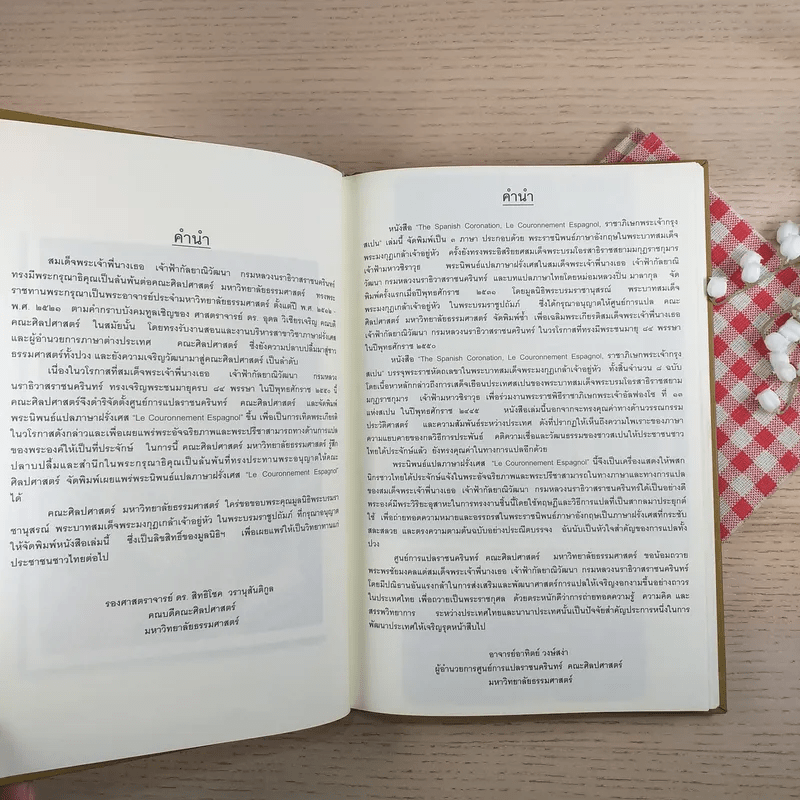 คำนำ
สมเด็จพระเจ้าพี่นางเธอ เจ้าฟ้ากัลยาณิวัฒนา กรมหลวงนราธิวาสราชนครินทร์
ทรงมีพระกรุณาธิคุณเป็นล้นพ้นต่อคณะศิลปศาสตร์ มหาวิทยาลัยธรรมศาสตร์ ทรงพระ
ราชทานพระกรุณาเป็นพระอาจารย์ประจำมหาวิทยาลัยธรรมศาสตร์ ตั้งแต่ปี พ.ศ.
พ.ศ. ๒๕๒๑ ตามคำกราบบังคมทูลเชิญของ ศาสตราจารย์ ดร. อุดล วิเชียรเจริญ คณบดี
คณะศิลปศาสตร์ ในสมัยนั้น โดยทรงรับงานสอนและงานบริหารสาขาวิชาภาษาฝรั่งเศส
และผู้อำนวยการภาษาต่างประเทศ คณะศิลปศาสตร์ ซึ่งยังความปลาบปลื้มมาสู่ชาว
ธรรมศาสตร์ทั้งปวง และยังความเจริญวัฒนามาสู่คณะศิลปศาสตร์ เป็นลำดับ
เนื่องในวโรกาสที่สมเด็จพระเจ้าพี่นางเธอ เจ้าฟ้ากัลยาณิวัฒนา กรมหลวง
นราธิวาสราชนครินทร์ ทรงเจริญพระชนมายุครบ ๘๔ พรรษา ในปีพุทธศักราช ๒๕๕๐ นี้
คณะศิลปศาสตร์จึงดำริจัดตั้งศูนย์การแปลราชนครินทร์ คณะศิลปศาสตร์ และจัดพิมพ์
พระนิพนธ์แปลภาษาฝรั่งเศส "Le Couronnement Espagnol" ขึ้น เพื่อเป็นการเทิดพระเกียรติ
ในวโรกาสดังกล่าวและเพื่อเผยแพร่พระอัจฉริยภาพและพระปรีชาสามารถทางด้านการแปล
ของพระองค์ให้เป็นที่ประจักษ์ ในการนี้ คณะศิลปศาสตร์ มหาวิทยาลัยธรรมศาสตร์ รู้สึก
ปลาบปลื้มและสำนึกในพระกรุณาธิคุณเป็นล้นพ้นที่ทรงประทานพระอนุญาตให้คณะ
ศิลปศาสตร์ จัดพิมพ์เผยแพร่พระนิพนธ์แปลภาษาฝรั่งเศส "Le Couronnement Espagnol"
ได้
คณะศิลปศาสตร์ มหาวิทยาลัยธรรมศาสตร์ ใคร่ขอขอบพระคุณมูลนิธิพระบรมรา
ชานุสรณ์ พระบาทสมเด็จพระมงกุฎเกล้าเจ้าอยู่หัว ในพระบรมราชูปถัมภ์ ที่กรุณาอนุญาต
ให้จัดพิมพ์หนังสือเล่มนี้ ซึ่งเป็นลิขสิทธิ์ของมูลนิธิฯ เพื่อเผยแพร่ให้เป็นวิทยาทานแก่
ประชาชนชาวไทยต่อไป
รองศาสตราจารย์ ดร. สิทธิโชค วรานุสันติกูล
คณบดีคณะศิลปศาสตร์
มหาวิทยาลัยธรรมศาสตร์
คำนำ
หนังสือ "The Spanish Coronation, Le Couronnement Espagnol, ราชาภิเษกพระเจ้ากรุง
สเปน" เล่มนี้ จัดพิมพ์เป็น ๓ ภาษา ประกอบด้วย พระราชนิพนธ์ภาษาอังกฤษในพระบาทสมเด็จ
พระมงกุฎเกล้าเจ้าอยู่หัว ครั้งยังทรงพระอิสริยยศสมเด็จพระบรมโอรสาธิราชสยามมกุฎราชกุมาร
เจ้าฟ้ามหาวชิราวุธ พระนิพนธ์แปลภาษาฝรั่งเศสในสมเด็จพระเจ้าพี่นางเธอ เจ้าฟ้ากัลยาณิ
วัฒนา กรมหลวงนราธิวาสราชนครินทร์ และบทแปลภาษาไทยโดยหม่อมหลวงปิ่น มาลากุล จัด
พิมพ์ครั้งแรกเมื่อปีพุทธศักราช ๒๕๓๐ โดยมูลนิธิพระบรมราชานุสรณ์ พระบาทสมเด็จ
พระมงกุฎเกล้าเจ้าอยู่หัว ในพระบรมราชูปถัมภ์ ซึ่งได้กรุณาอนุญาตให้ศูนย์การแปล คณะ
ศิลปศาสตร์ มหาวิทยาลัยธรรมศาสตร์ จัดพิมพ์ซ้ำ เพื่อเฉลิมพระเกียรติสมเด็จพระเจ้าพี่นางเธอ
เจ้าฟ้ากัลยาณิวัฒนา กรมหลวงนราธิวาสราชนครินทร์ ในวโรกาสที่ทรงมีพระชนมายุ ๘๔ พรรษา
ในปีพุทธศักราช ๒๕๕๐
หนังสือ "The Spanish Coronation, Le Couronnement Espagnol, ราชาภิเษกพระเจ้ากรุง
สเปน" บรรจุพระราชหัตถเลขาในพระบาทสมเด็จพระมงกุฎเกล้าเจ้าอยู่หัว ทั้งสิ้นจำนวน ๘ ฉบับ
โดยเนื้อหาหลักกล่าวถึงการเสด็จเยือนประเทศสเปนของพระบาทสมเด็จพระบรมโอรสาธิราชสยาม
มกุฎราชกุมาร เจ้าฟ้ามหาวชิราวุธ เพื่อร่วมงานพระราชพิธีราชาภิเษกพระเจ้าอัลฟองโซ ที่ ๑๓
แห่งสเปน ในปีพุทธศักราช ๒๔๔๕ หนังสือเล่มนี้นอกจากจะทรงคุณค่าทางด้านวรรณกรรม
ประวัติศาสตร์ และความสัมพันธ์ระหว่างประเทศ ดังที่ปรากฏให้เห็นถึงความไพเราะของภาษา
ความแยบคายของกลวิธีการประพันธ์ คติความเชื่อและวัฒนธรรมของชาวสเปนให้ประชาชนชาว
ไทยได้ประจักษ์แล้ว ยังทรงคุณค่าในทางการแปลอีกด้วย
พระนิพนธ์แปลภาษาฝรั่งเศส "Le Couronnement Espagnol" นี้จึงเป็นเครื่องแสดงให้พสก
นิกรชาวไทยได้ประจักษ์แจ้งในพระอัจฉริยภาพและพระปรีชาสามารถในทางภาษาและทางการแปล
ของสมเด็จพระเจ้าพี่นางเธอ เจ้าฟ้ากัลยาณิวัฒนา กรมหลวงนราธิวาสราชนครินทร์ได้เป็นอย่างดี
พระองค์มีพระวิริยะอุตสาหะในการทรงงานชิ้นนี้โดยใช้ทฤษฎีและวิธีการแปลที่เป็นสากลมาประยุกต์
ใช้ เพื่อถ่ายทอดความหมายและอรรถรสในพระราชนิพนธ์ภาษาอังกฤษเป็นภาษาฝรั่งเศสที่กระชับ
สละสลวย และตรงความตามต้นฉบับอย่างประณีตบรรจง อันนับเป็นหัวใจสำคัญของการแปลทั้ง
ปวง
ศูนย์การแปลราชนครินทร์ คณะศิลปศาสตร์ มหาวิทยาลัยธรรมศาสตร์ ขอน้อมถวาย
พระพรชัยมงคลแด่สมเด็จพระเจ้าพี่นางเธอ เจ้าฟ้ากัลยาณิวัฒนา กรมหลวงนราธิวาสราชนครินทร์
โดยมีปณิธานอันแรงกล้าในการส่งเสริมและพัฒนาศาสตร์การแปลให้เจริญงอกงามขึ้นอย่างถาวร
ในประเทศไทย เพื่อถวายเป็นพระราชกุศล ด้วยตระหนักดีว่าการถ่ายทอดความรู้ ความคิด และ
สรรพวิทยาการ ระหว่างประเทศไทยและนานาประเทศนั้นเป็นปัจจัยสำคัญประการหนึ่งในการ
พัฒนาประเทศให้เจริญรุดหน้าสืบไป
อาจารย์อาทิตย์ วงษ์สง่า
ผู้อำนวยการศูนย์การแปลราชนครินทร์ คณะศิลปศาสตร์
มหาวิทยาลัยธรรมศาสตร์